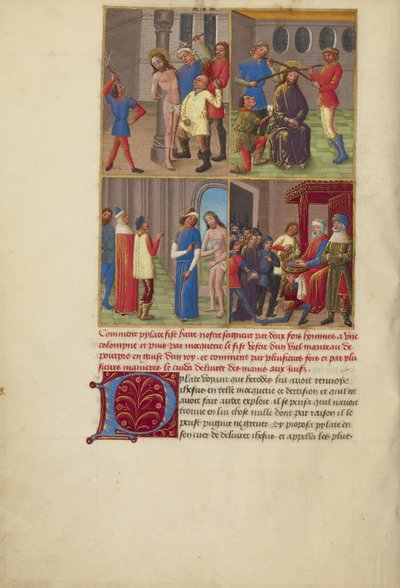 Comment pylate fist batre nostre seigneur par deux fois hommes a une
colompne et puis par mocquerie le fist vestir dun viel manteau de
pourpre en guise dun roy. et comment par plusieurs fois et par plu
sieurs manieres le cuida delivrer des mains aux juifz
Pylate voyant que herodes lui avoit renvoie
Jhesus en telle mocquerie et derision et quil ne
avoit fait autre exploit il se pensa quil navoit
trouve en lui chose nulle dont par raison il le
peust pugnir ne grever. Sy proposa pylate en
son cuer de delivrer Jhesus et appella les plus